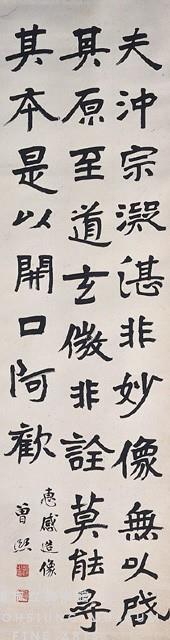 夫沖宗凝湛非妙像無以啟
其原至道玄微非詮莫能尋
其本是以開口阿歡
惠感造像
曾熙